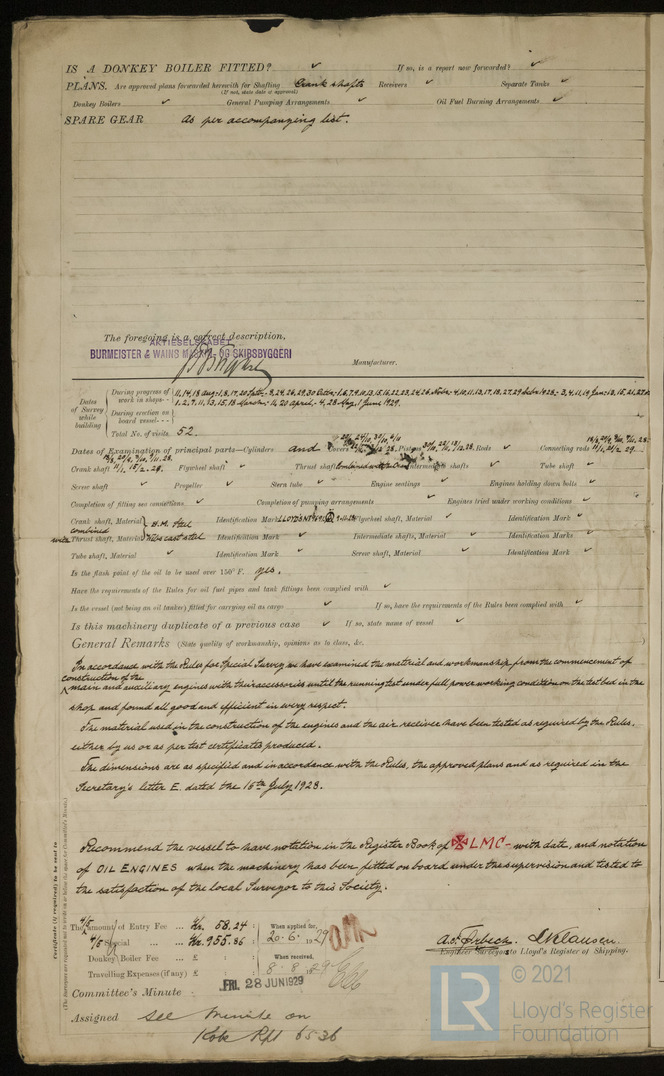 IS A DONKEY BOILER FITTED? ✓ If so, is a report now forwarded? ✓
PLANS. Are approved plans forwarded herewith for Shafting Crank shafts Receivers ✓ Separate Tanks ✓
(If not, state date of approval)
Donkey Boilers ✓ General Pumping Arrangements ✓ Oil Fuel Burning Arrangements ✓
SPARE GEAR As per accompanying list.
The foregoing is a correct description,
AKTIESELSKABET
BURMEISTER & WAINS MASKIN- OG SKIBSBYGGERI
Manufacturer.
Dates of Survey while building
During progress of work in shops
During erection on board vessel
Total No. of visits 52
Dates of Examination of principal parts—Cylinders and Covers Pistons Rods ✓ Connecting rods
Crank shaft Flywheel shaft ✓ Thrust shaft combined with Crank Intermediate shafts ✓ Tube shaft ✓
Screw shaft ✓ Propeller ✓ Stern tube ✓ Engine seatings ✓ Engines holding down bolts ✓
Completion of fitting sea connections ✓ Completion of pumping arrangements ✓ Engines tried under working conditions ✓
Crank shaft, Material S.M. Steel Identification Mark LLOYD'S Flywheel shaft, Material ✓ Identification Mark ✓
combined
with Thrust shaft, Material Webs cast steel Identification Mark ✓ Intermediate shafts, Material ✓ Identification Marks ✓
Tube shaft, Material ✓ Identification Mark ✓ Screw shaft, Material ✓ Identification Mark ✓
Is the flash point of the oil to be used over 150° F. yes.
Have the requirements of the Rules for oil fuel pipes and tank fittings been complied with ✓
Is the vessel (not being an oil tanker) fitted for carrying oil as cargo ✓ If so, have the requirements of the Rules been complied with ✓
Is this machinery duplicate of a previous case ✓ If so, state name of vessel ✓
General Remarks (State quality of workmanship, opinions as to class, &c.
In accordance with the Rules for Special Survey we have examined the material and workmanship from the commencement of
construction of the
main and auxiliary engines with their accessories until the running test under full power working condition on the test bed in the
shop and found all good and efficient in every respect.
The material used in the construction of the engines and the air receiver have been tested as required by the Rules,
either by us or as per test certificates produced.
The dimensions are as specified and in accordance with the Rules, the approved plans and as required in the
Secretary's letter E. dated the 16th July 1928.
Recommend the vessel to have notation in the Register Book of ✠ LMC – with date, and notation
of OIL ENGINES when the machinery has been fitted on board under the supervision and tested to
the satisfaction of the local Surveyor to this Society.
Certificate (if required) to be sent to
(The Surveyors are requested not to write on or below the space for Committee's Minute.)
The 4/5 amount of Entry Fee ... Kr. 58.24 : When applied for,
4/5 Special ... Kr. 955.86 20.6.1929
Donkey Boiler Fee ... £ : : When received,
Travelling Expenses (if any) £ : : 8.8.1929
Engineer Surveyors to Lloyd's Register of Shipping.
Committee's Minute FRI. 28 JUN 1929
Assigned See Minute on
Kobe Rpt 6536
© 2021
Lloyd's Register
Foundation
LR